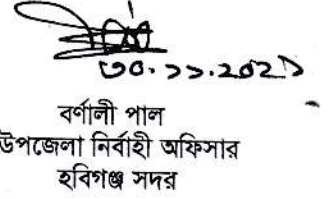 ৩০.১১.২০২১
বর্ণালী পাল
উপজেলা নির্বাহী অফিসার
হবিগঞ্জ সদর